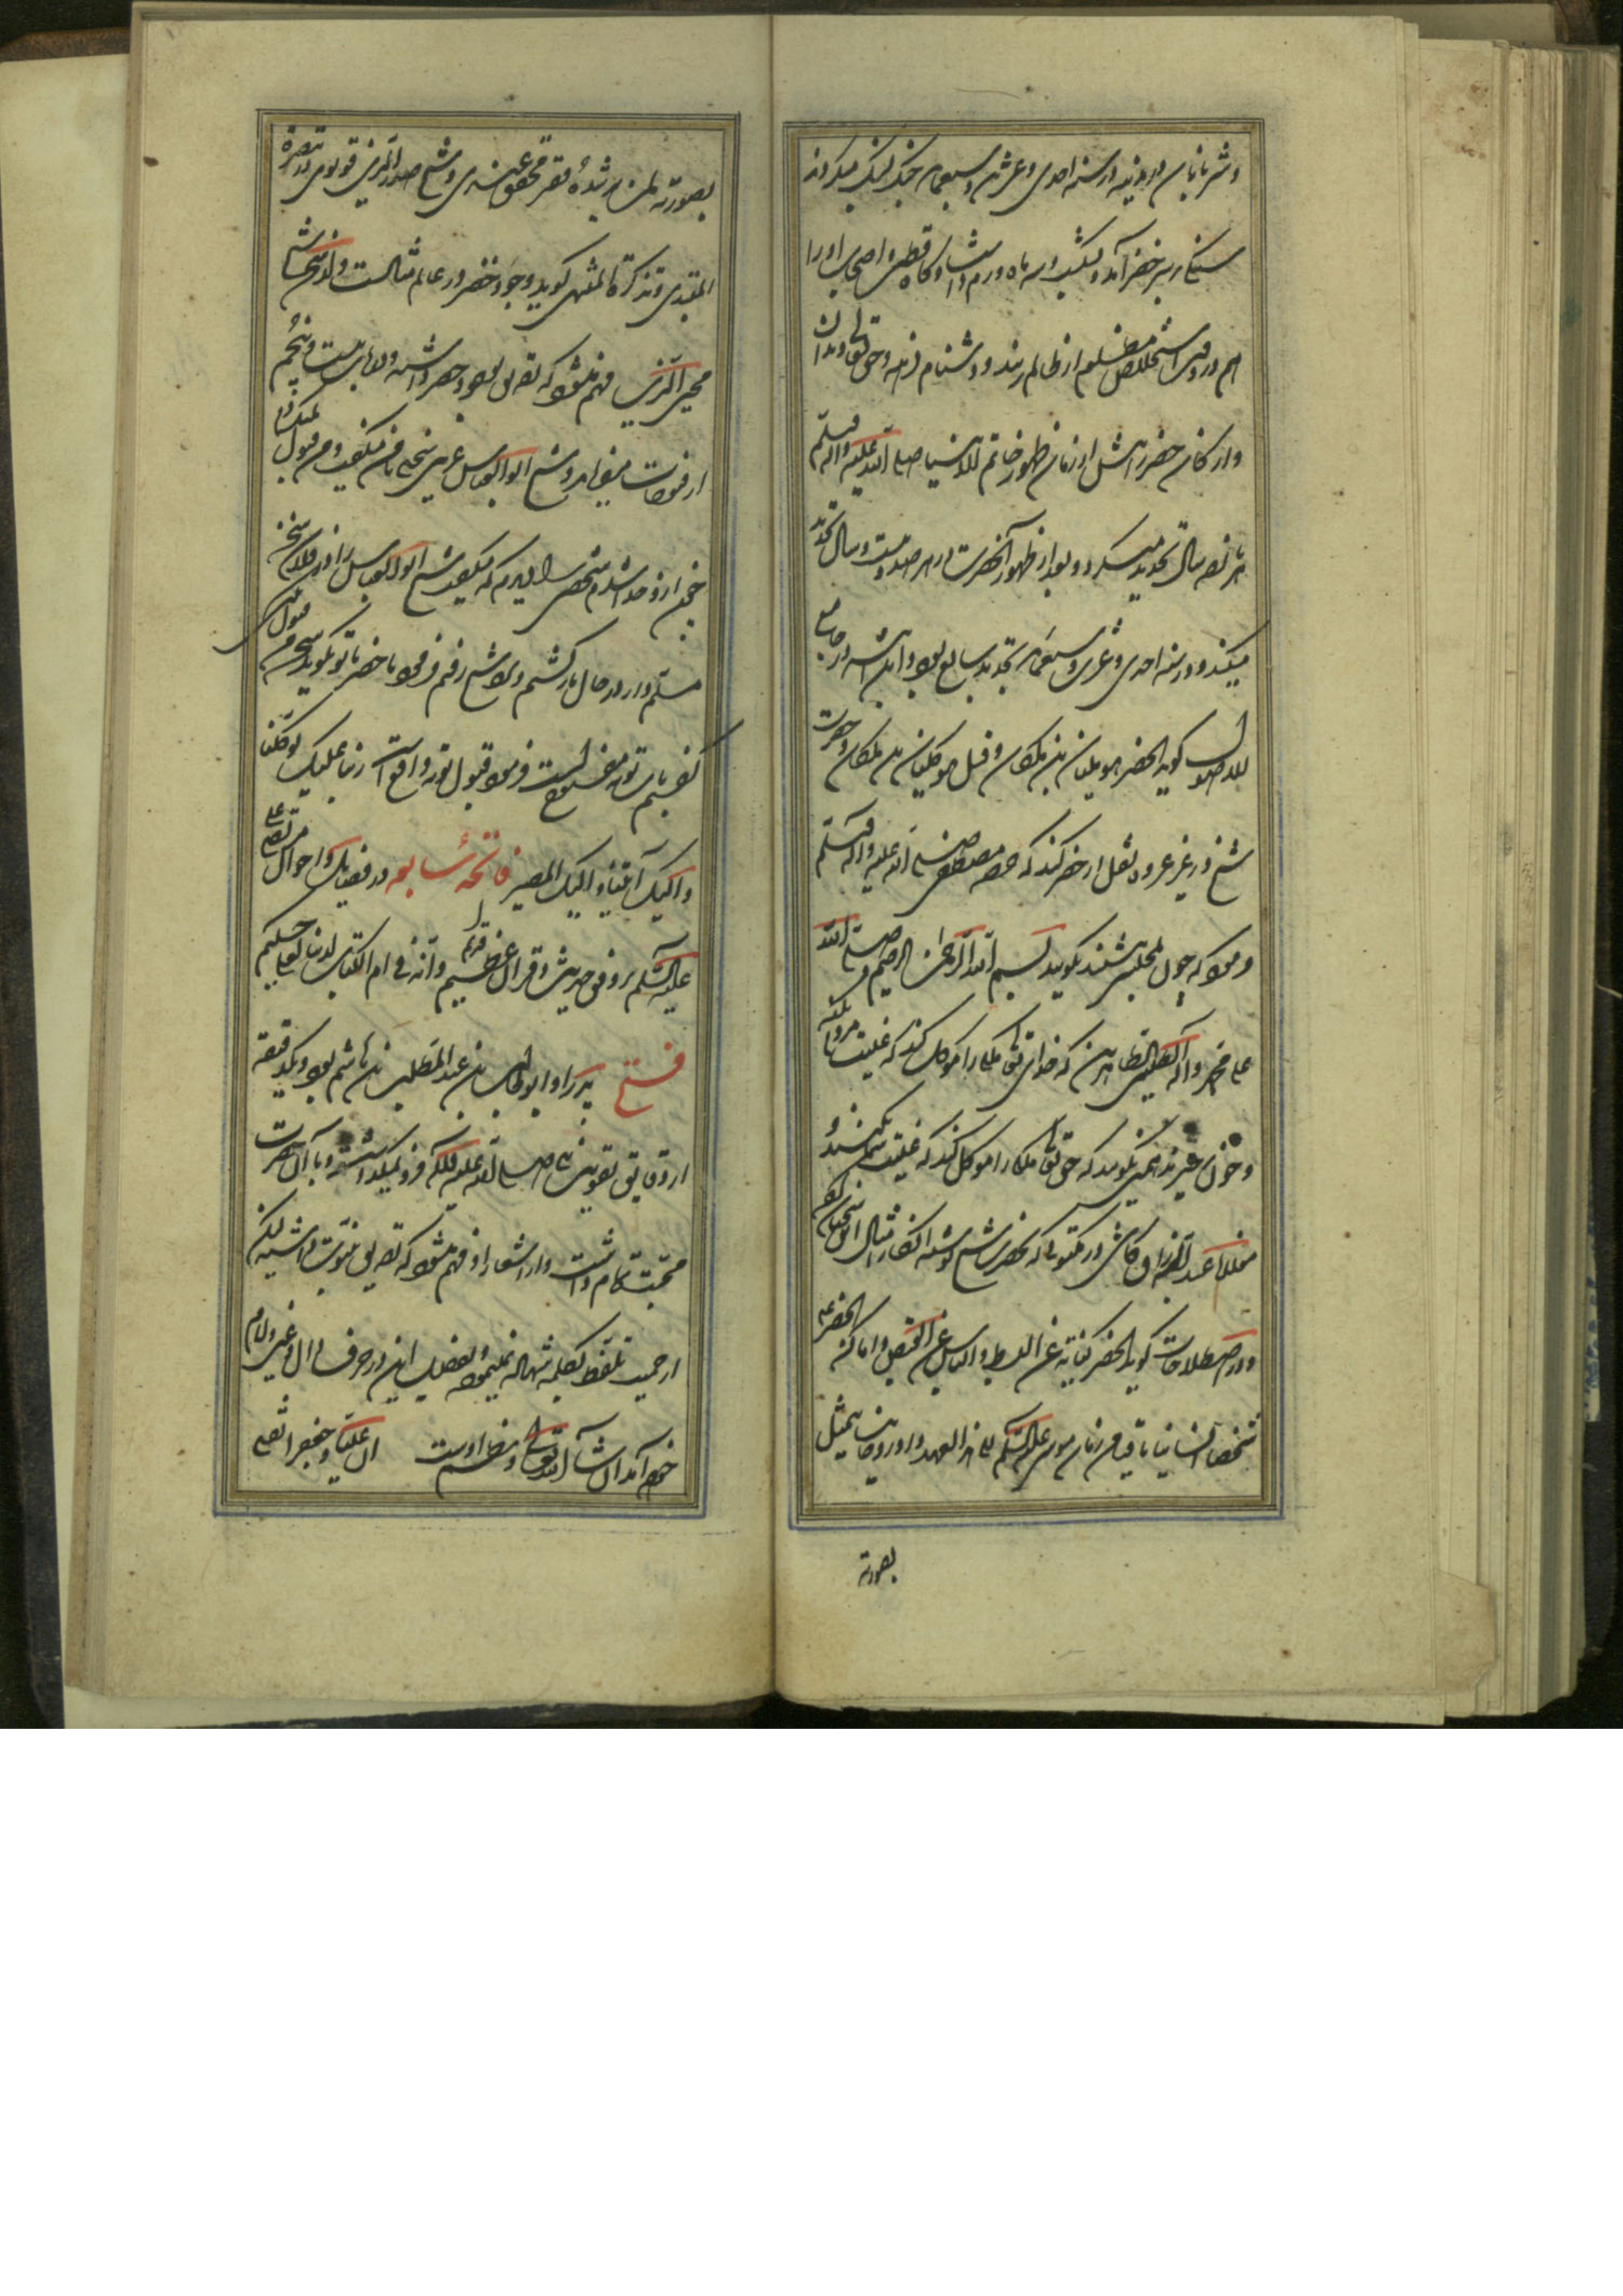 و شتربانان در مدینه در سنه احدی و عشرین و سبعمایه جنک سنک میکردند
سنکی بر سر خضر آمد و بشکست و سه ماه ورم داشت و کاه قطب و اصحاب او را
هم در وقت استخلاص مظلوم از ظالم زنند و دشنام دهند و حق تعالی دندان
و ارکان خضر را پیش از زمان ظهور خاتم الانبیا صلی الله علیه و آله و سلم
هر پانصد سال تجدید میکرد و بعد از ظهور آنحضرت در هر صد و بیست سال تجدید
میکند و در سنه احدی و عشرین و سبعمایه تجدید سابع بود و ابن اثیر در جامع
الاصول کوید الخضر هو بلیان بن ملکان و قیل هو کلیان بن ملکان و حضرت
شیخ در غیر عروه نقل از خضر کند که حضرت مصطفی صلی الله علیه و آله و سلم
فرمود که چون بمجلس بنشینید بکویید بسم الله الرحمن الرحیم و صلی الله
علی محمد و آله الطیبین الطاهرین که خدای تعالی ملکی را موکل کند که غیبت مردم نکنید
و چون برخیزید همین بکویید که حق تعالی ملکی را موکل کند که غیبت شما نکنند و
مولانا عبد الرزاق کاشی در مکتوبی که بحضرت شیخ نوشته انکار امثال این سخنان کرده
و در اصطلاحات کوید الخضر کنایة عن البسط و الیاس عن القبض و اما کون الخضر علیه
شخصا انسانیا باقیا من زمان موسی علیه السلم الی هذا العهد او روحانیا یتمثل
بصورته
بصورته لمن یرشده فغیر محقق عندی و شیخ صدر الدین قونوی در تبصرة
المبتدی و تذکرة المنتهی کوید وجود خضر در عالم مثالست و از سخن شیخ
محیی الدین فهم میشود که تصدیق بوجود خضر داشته و در باب بیست و پنجم
از فتوحات میفرماید و شیخ ابو العباس عریبی سخنی با من میکفت و من قبول نمیکردم
چون از و جدا شدم شخصی را دیدم که میکوید شیخ ابو العباس را در فلان سخن
مسلم دار در حال بازکشتم و نزد شیخ رفتم فرمود تا خضر با تو نکوید سخن من قبول نمیکنی
کفتم باب توبه مفتوح است فرمود قبول توبه واقع است ربنا علیک توکلنا
و الیک انبنا و الیک المصیر فاتحه سابعه در فضایل و احوال مرتضی علی
علیه السلم بر وفق حدیث و قرآن عظیم قدیم و انه فی ام الکتاب لدینا لعلی حکیم
فتح پدر او ابو طالب بن عبد المطلب بن هاشم بود و یکدقیقه
از دقایق تقویت نبی صلی الله علیه و آله فرو نمیکذاشته و با آن حضرت
محبت تمام داشت و از اشعار او فهم میشود که تصدیق نبوت داشته لیکن
از حمیت تلفظ بکلمه شهاده نمینموده و تفصیل این در حرف دال و غین و لام
خواهد آمد ان شاء الله تعالی و نظم اوست ان علیا و جعفرا ثقتی